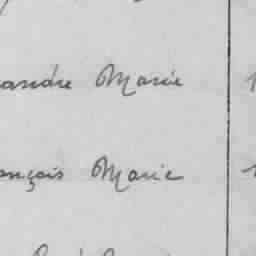 andre Marie
ançois Marie